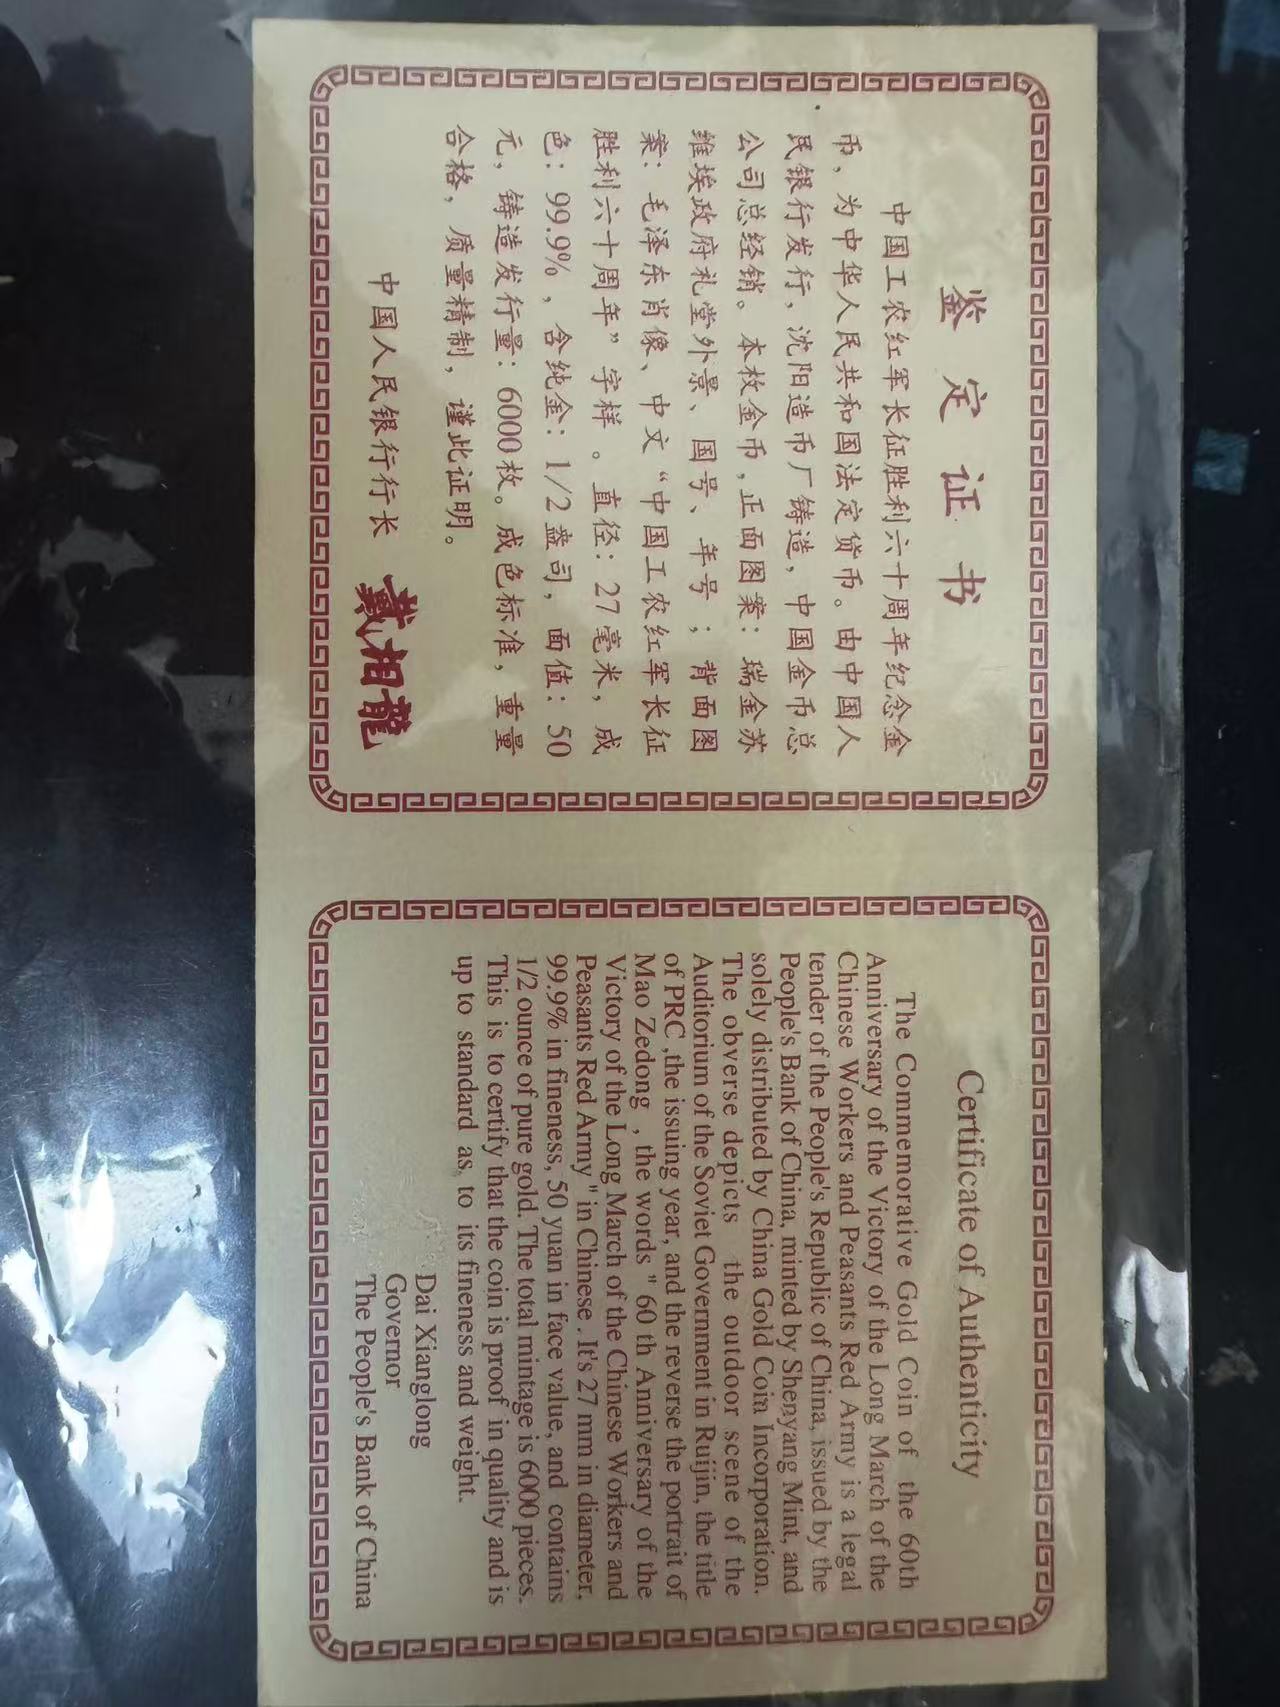 鉴定证书
中国工农红军长征胜利六十周年纪念金
币，为中华人民共和国法定货币。由中国人
民银行发行，沈阳造币厂铸造，中国金币总
公司总经销。本枚金币,正面图案：瑞金苏
维埃政府礼堂外景、国号、年号；背面图
案：毛泽东肖像、中文“中国工农红军长征
胜利六十周年”字样。直径：27毫米，成
色：99.9%，含纯金：1/2盎司，面值：50
元，铸造发行量：6000枚。成色标准，重量
合格，质量精制，谨此证明。
中国人民银行行长 戴相龍
Certificate of Authenticity
The Commemorative Gold Coin of the 60th
Anniversary of the Victory of the Long March of the
Chinese Workers and Peasants Red Army is a legal
tender of the People's Republic of China, issued by the
People's Bank of China, minted by Shenyang Mint, and
solely distributed by China Gold Coin Incorporation.
The obverse depicts the outdoor scene of the
Auditorium of the Soviet Government in Ruijin, the title
of PRC ,the issuing year, and the reverse the portrait of
Mao Zedong , the words " 60 th Anniversary of the
Victory of the Long March of the Chinese Workers and
Peasants Red Army " in Chinese . It's 27 mm in diameter,
99.9% in fineness, 50 yuan in face value, and contains
1/2 ounce of pure gold. The total mintage is 6000 pieces.
This is to certify that the coin is proof in quality and is
up to standard as to its fineness and weight.
Dai Xianglong
Governor
The People's Bank of China